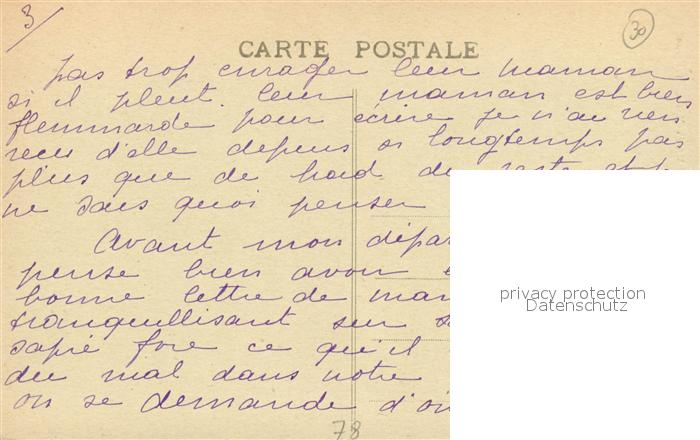 3/
30
CARTE POSTALE
pas trop enrager leur maman
si il pleut. leur maman est bien
flemmarde pour écrire je n'ai rien
reçu d'elle depuis si longtemps pas
plus que de
ne sais quoi penser
Avant mon dépar
pense bien avoir
bonne lettre de mam
tranquillisant sur
ce qu'il
du mal dans notre
on se demande d'où
78
privacy protection
Datenschutz